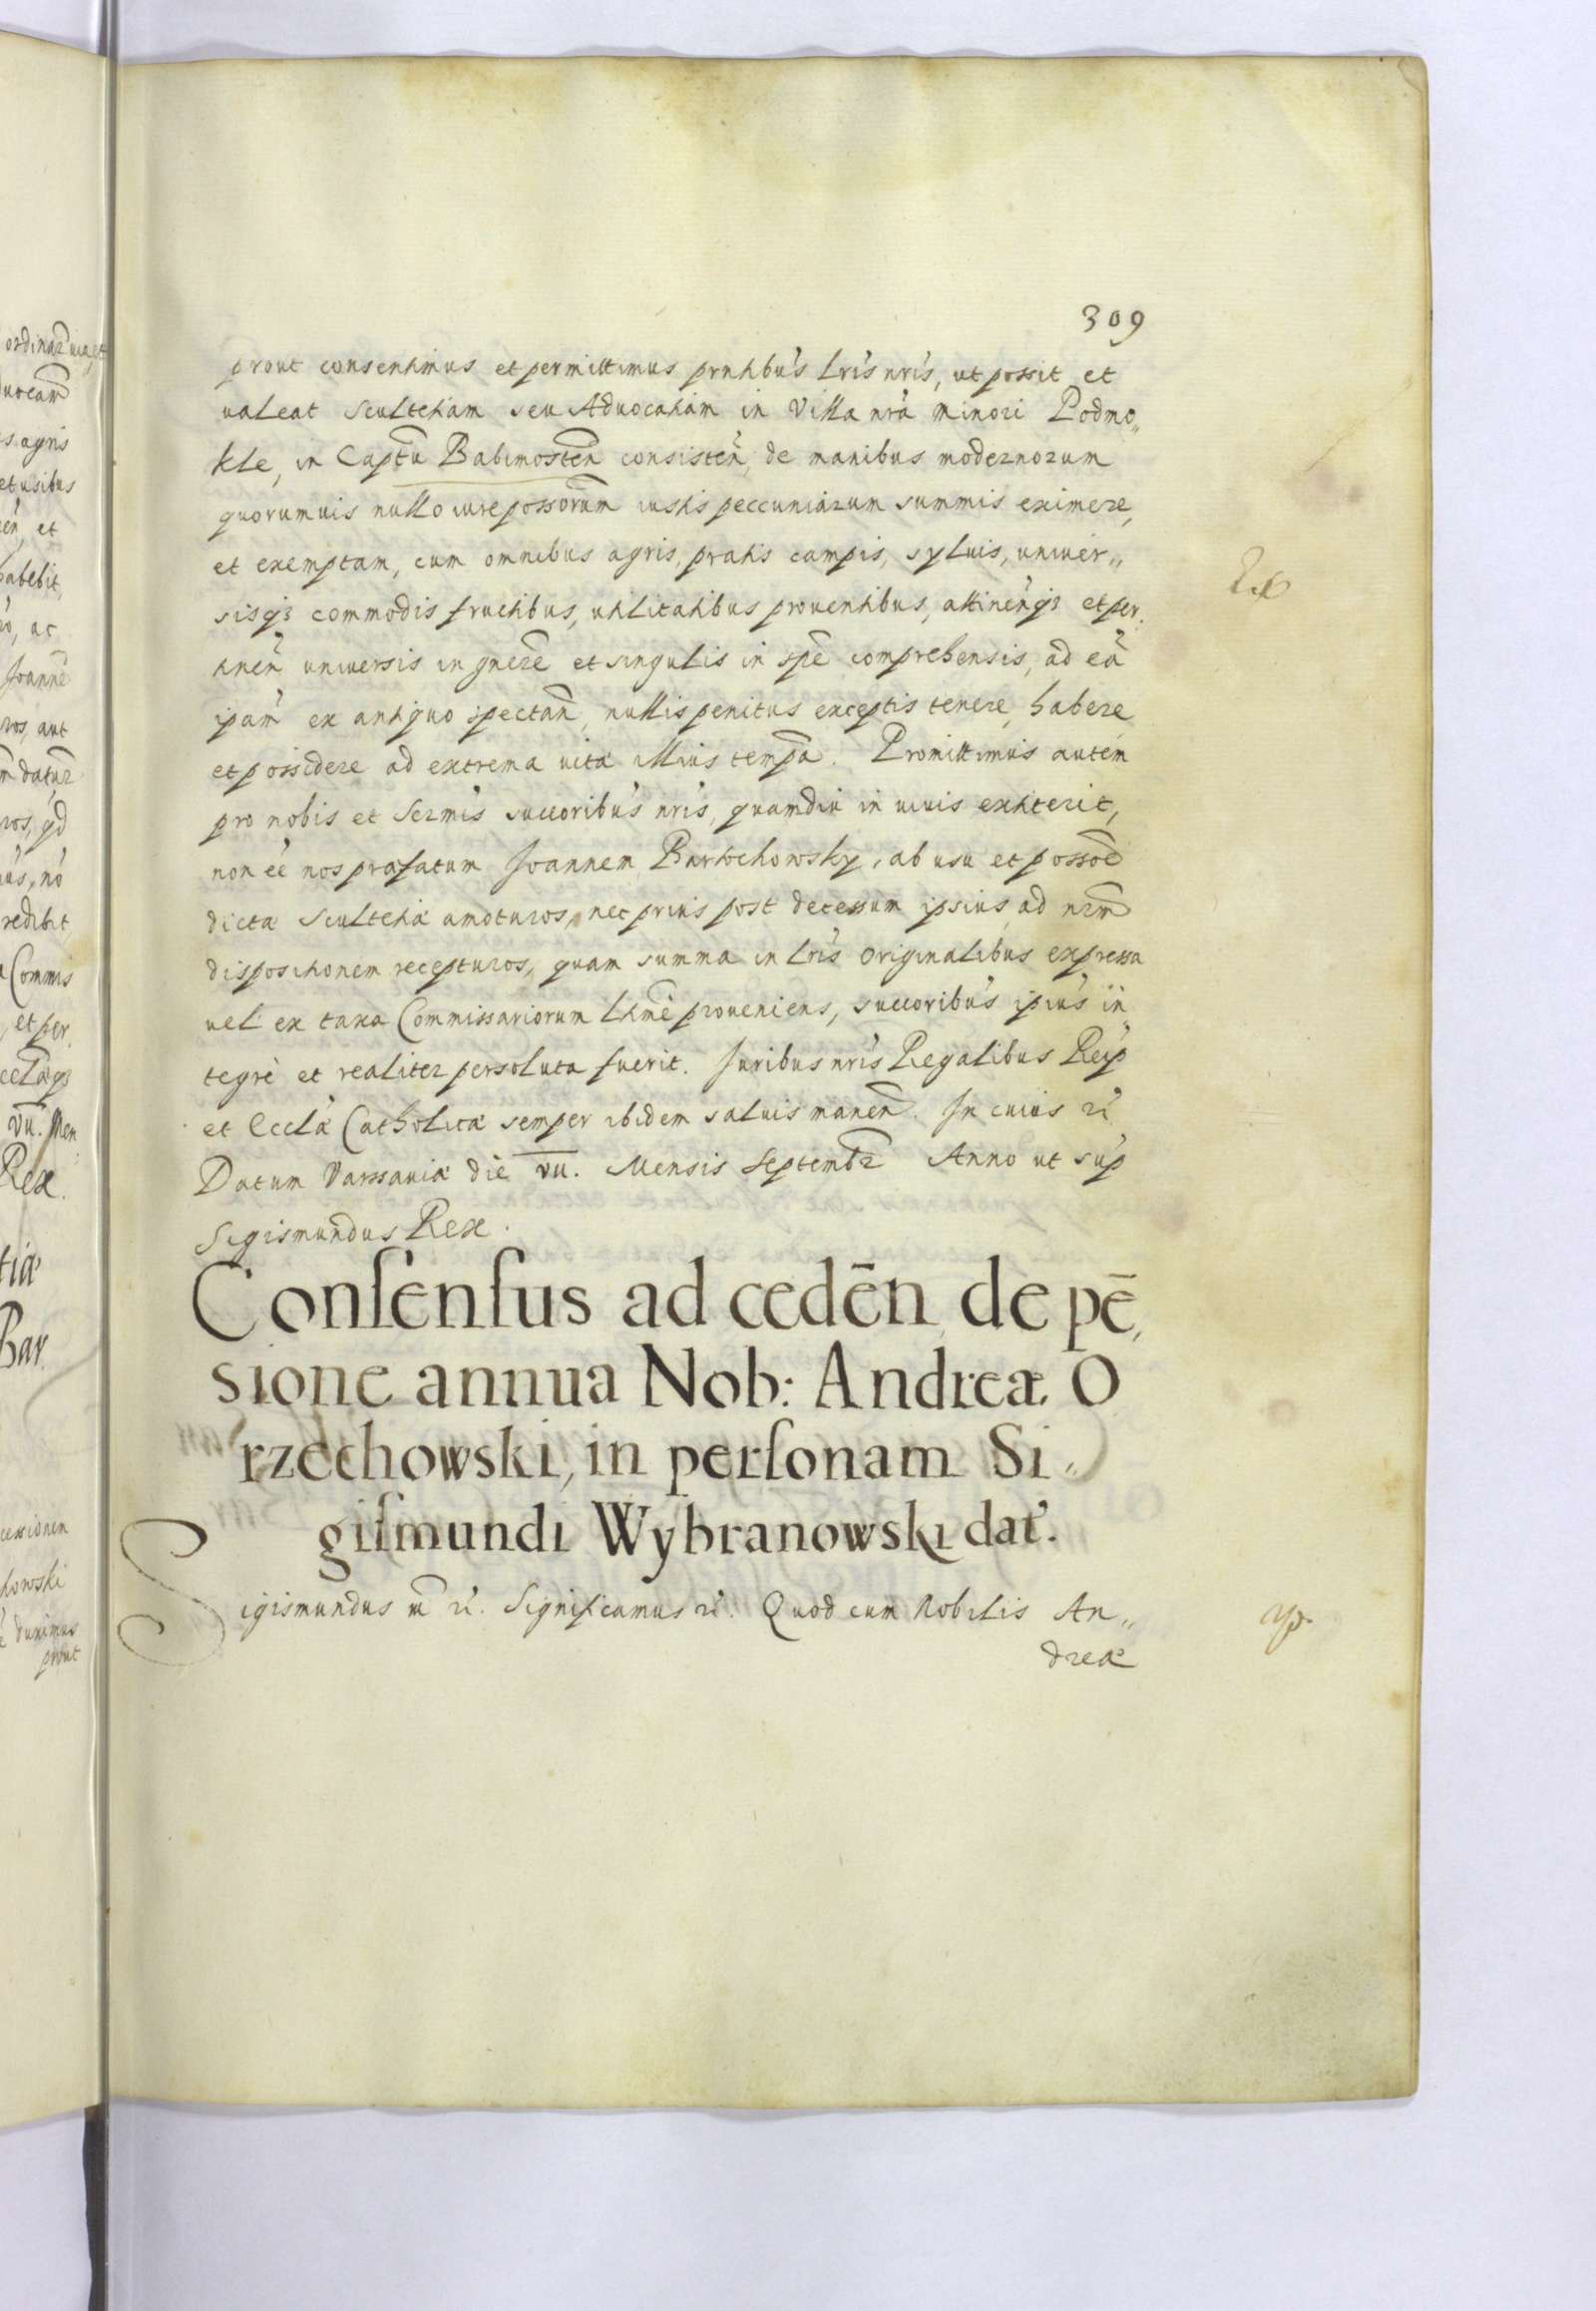 309
prout consentimus et permittimus pñtibus lris nris, ut possit et
ualeat Scultetiam seu Aduocatiam in Villa nrã minori Podmo„
kle, in Captũ Babimosteñ consisteñ, de manibus modernorum
quorumuis nullo iure possorum iustis peccuniarum summis eximere,
et exemptam, cum omnibus agris, pratis campis, syluis, uniuer„
sisqʒ commodis fructibus, utilitatibus prouentibus, attineñqʒ et per„
tineñ uniuersis in gñere et singulis in spẽ comprehensis, ad eã
ipam ex antiquo spectañ, nullis penitus exceptis tenere, habere
et possidere ad extrema uitæ illius tempa. Promittimus autem
pro nobis et Sermis succoribus nris, quamdiu in uiuis extiterit,
non eẽ nos præfatum Joannem Bartochowsky, ab usu et possoẽ
dictæ Scultetiæ amoturos, nec prius post decessum ipsius, ad nrm̃
dispositionem recepturos, quam summa in lris originalibus expressa
uel ex taxa Commissariorum ltimẽ proueniens, succoribus ipius in„
tegrè et realiter persoluta fuerit. Juribus nris Regalibus Reip
et Ecclæ Catholicæ semper ibidem saluis maneñ. In cuius rĩ
Datum Varsauiæ die VII. Mensis Septembr Anno ut sup
Sigismundus Rex.
Conſenſus ad cedēn, de pē„
sione annua Nob: Andreæ O
rzechowski, in perſonam Si„
giſmundi Wybranowski dat̃.
Sigismundus m̃ rĩ. Significamus rĩ. Quod cum Nobilis An„
dreæ
ordinar
agris
et usibus
et
habebit,
ac
Joanne
aut
datur
redibit
Commis
et per
VII. Men
Rex.
tiæ
Bar
cessionem
kowski
duximus
prout